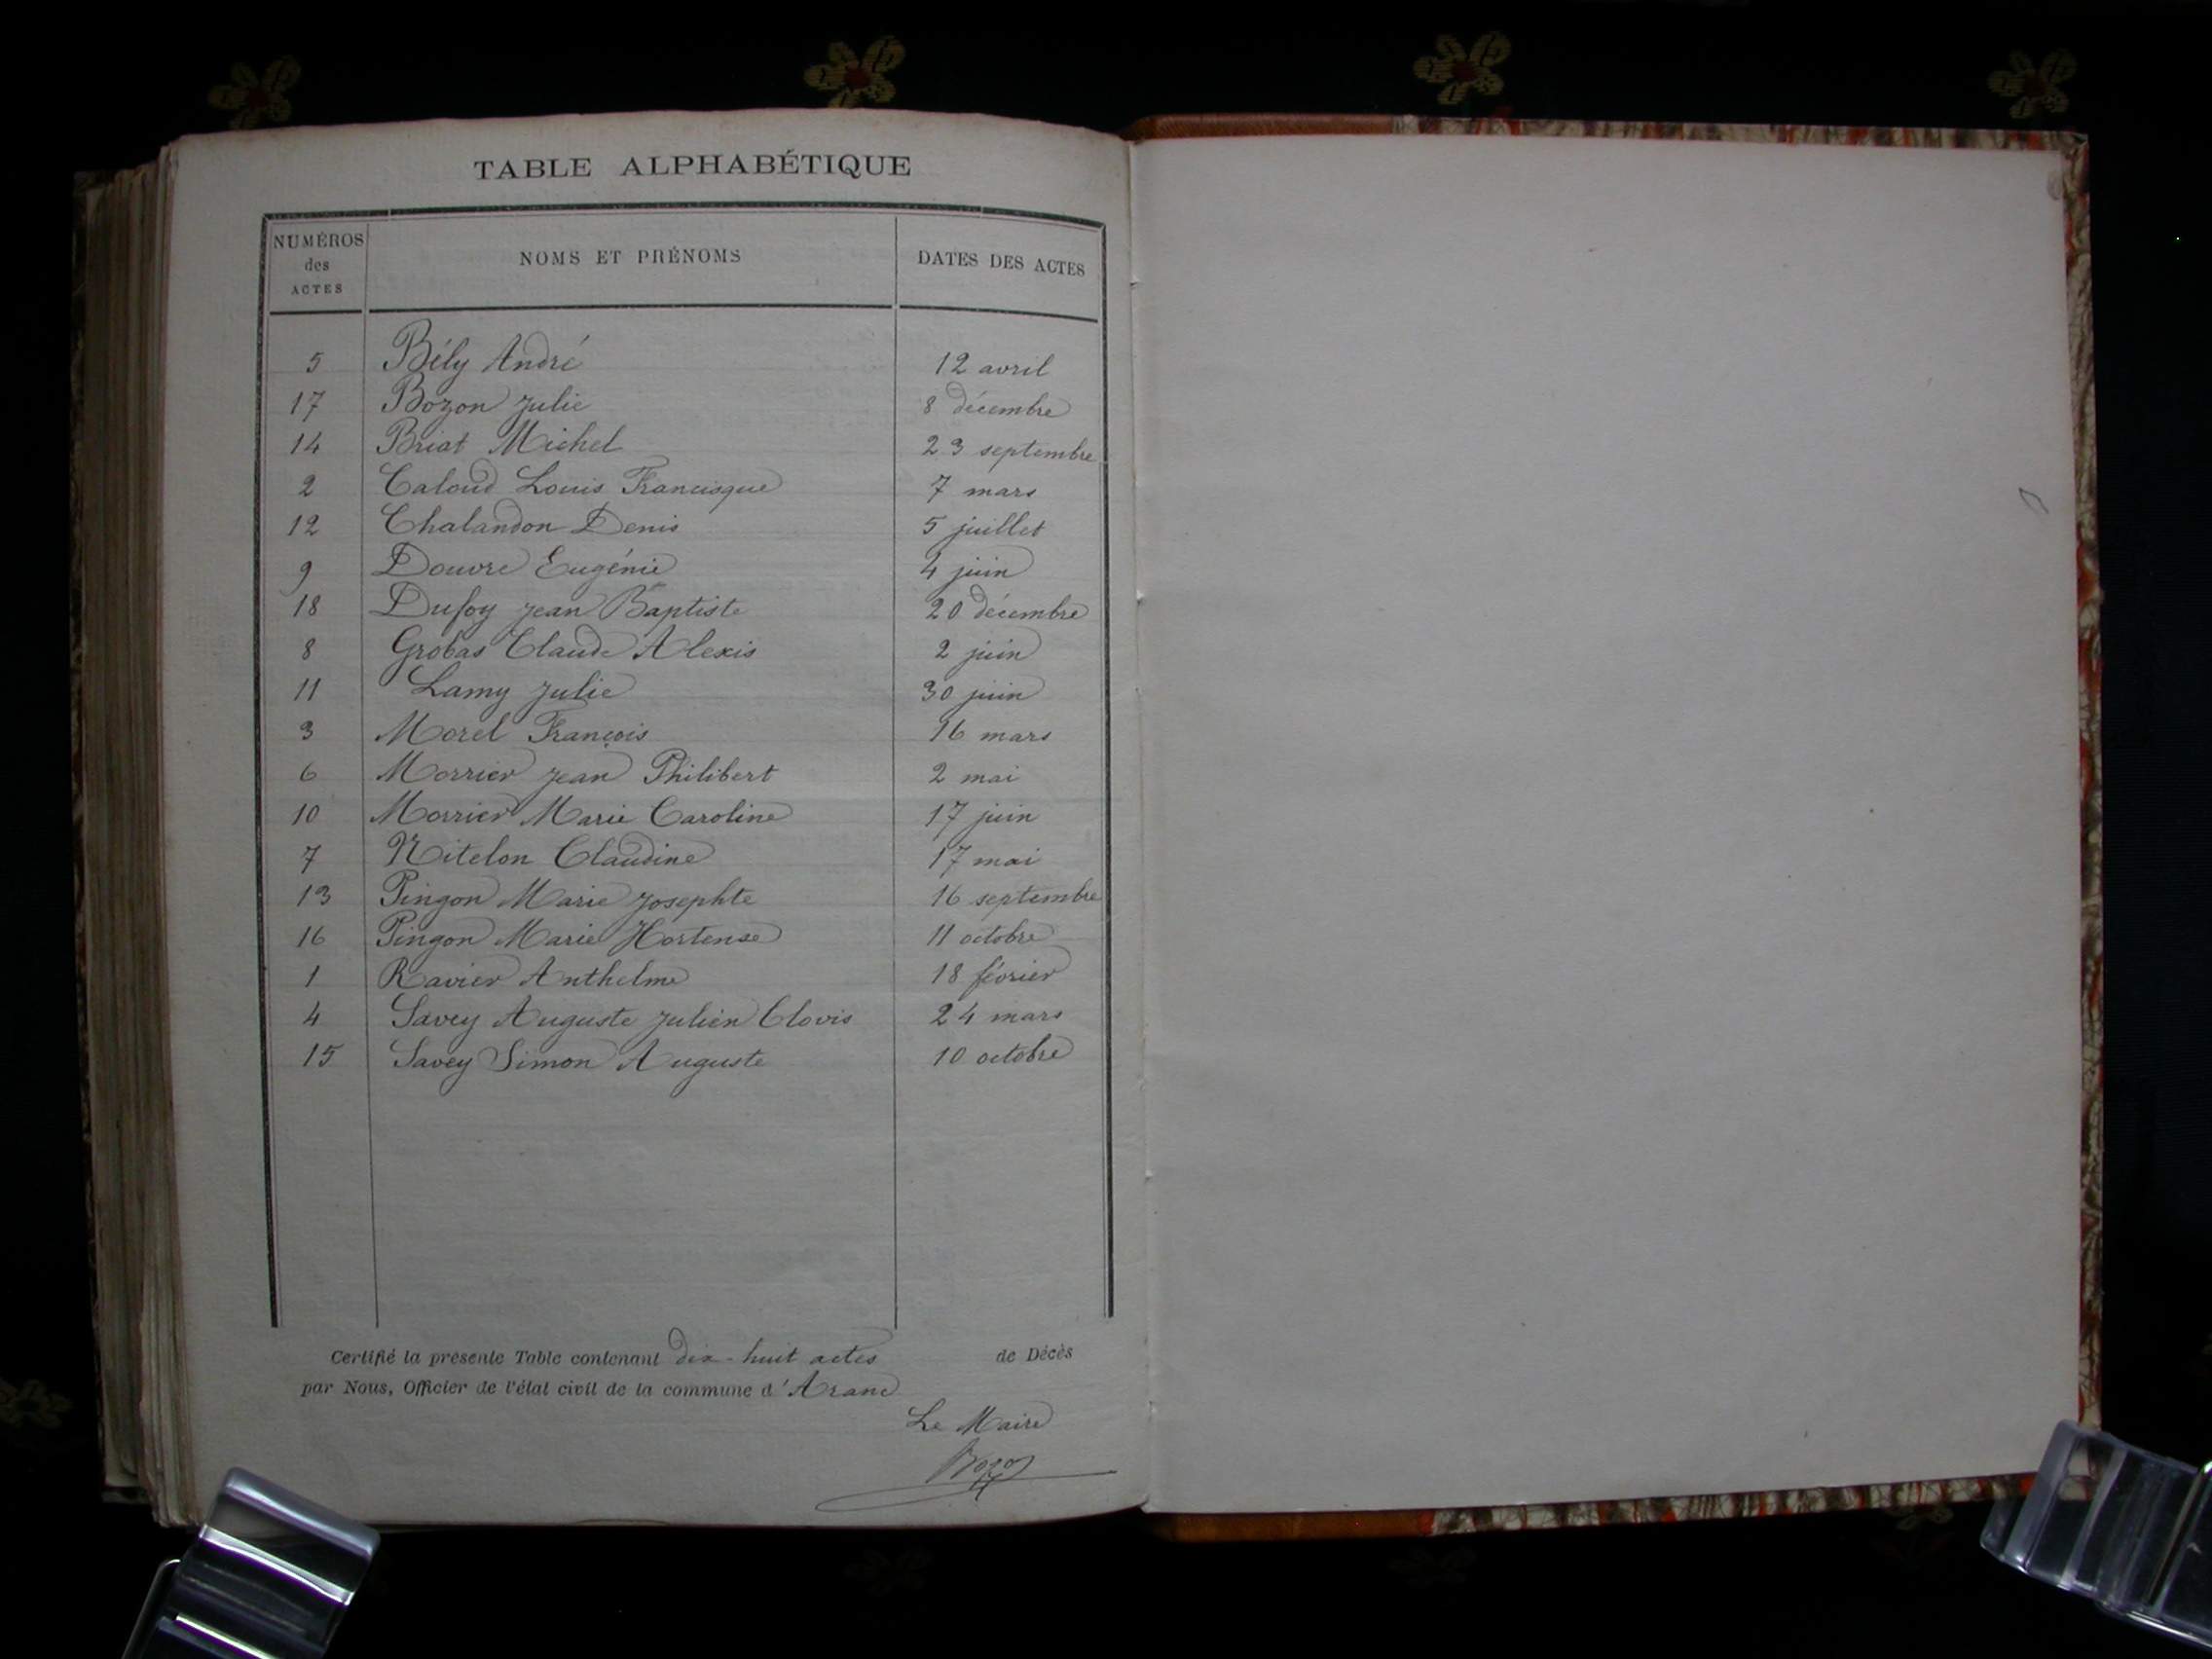 TABLE ALPHABÉTIQUE
NUMÉROS des ACTES NOMS ET PRÉNOMS DATES DES ACTES
5 Bély André 12 avril
17 Bozon Julie 8 décembre
14 Briat Michel 23 septembre
2 Caloud Louis Francisque 7 mars
12 Chalandon Denis 5 juillet
9 Douvre Eugénie 4 juin
18 Dufoy Jean Baptiste 20 décembre
8 Grobas Claude Alexis 2 juin
11 Lamy Julie 30 juin
3 Morel François 16 mars
6 Morrier Jean Philibert 2 mai
10 Morrier Marie Caroline 17 juin
7 Nitelon Claudine 17 mai
13 Pingon Marie Josephte 16 septembre
16 Pingon Marie Hortense 11 octobre
1 Ravier Anthelme 18 février
4 Savey Auguste Julien Clovis 24 mars
15 Savey Simon Auguste 10 octobre
Certifié la présente Table contenant dix-huit actes de Décès
par Nous, Officier de l'état civil de la commune d'Aranc
Le Maire